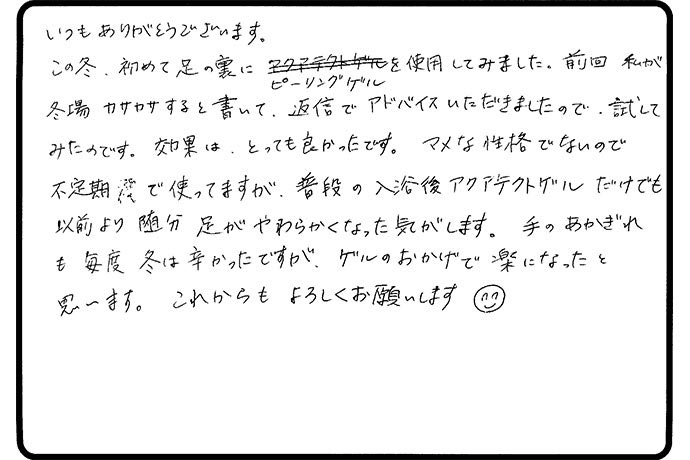 いつもありがとうございます。
この冬、初めて足の裏に アクアテクトゲルを使用してみました。前回 私が
ピーリングゲル
冬場 カサカサすると書いて、返信で アドバイスいただきましたので、試して
みたのです。効果は、とっても良かったです。 マメな性格でないので
不定期 で使ってますが、普段の入浴後アクアテクトゲル だけでも
以前より 随分 足が やわらかくなった気がします。 手のあかぎれ
も 毎度 冬は辛かったですが、ゲルのおかげで 楽になったと
思います。 これからも よろしくお願いします